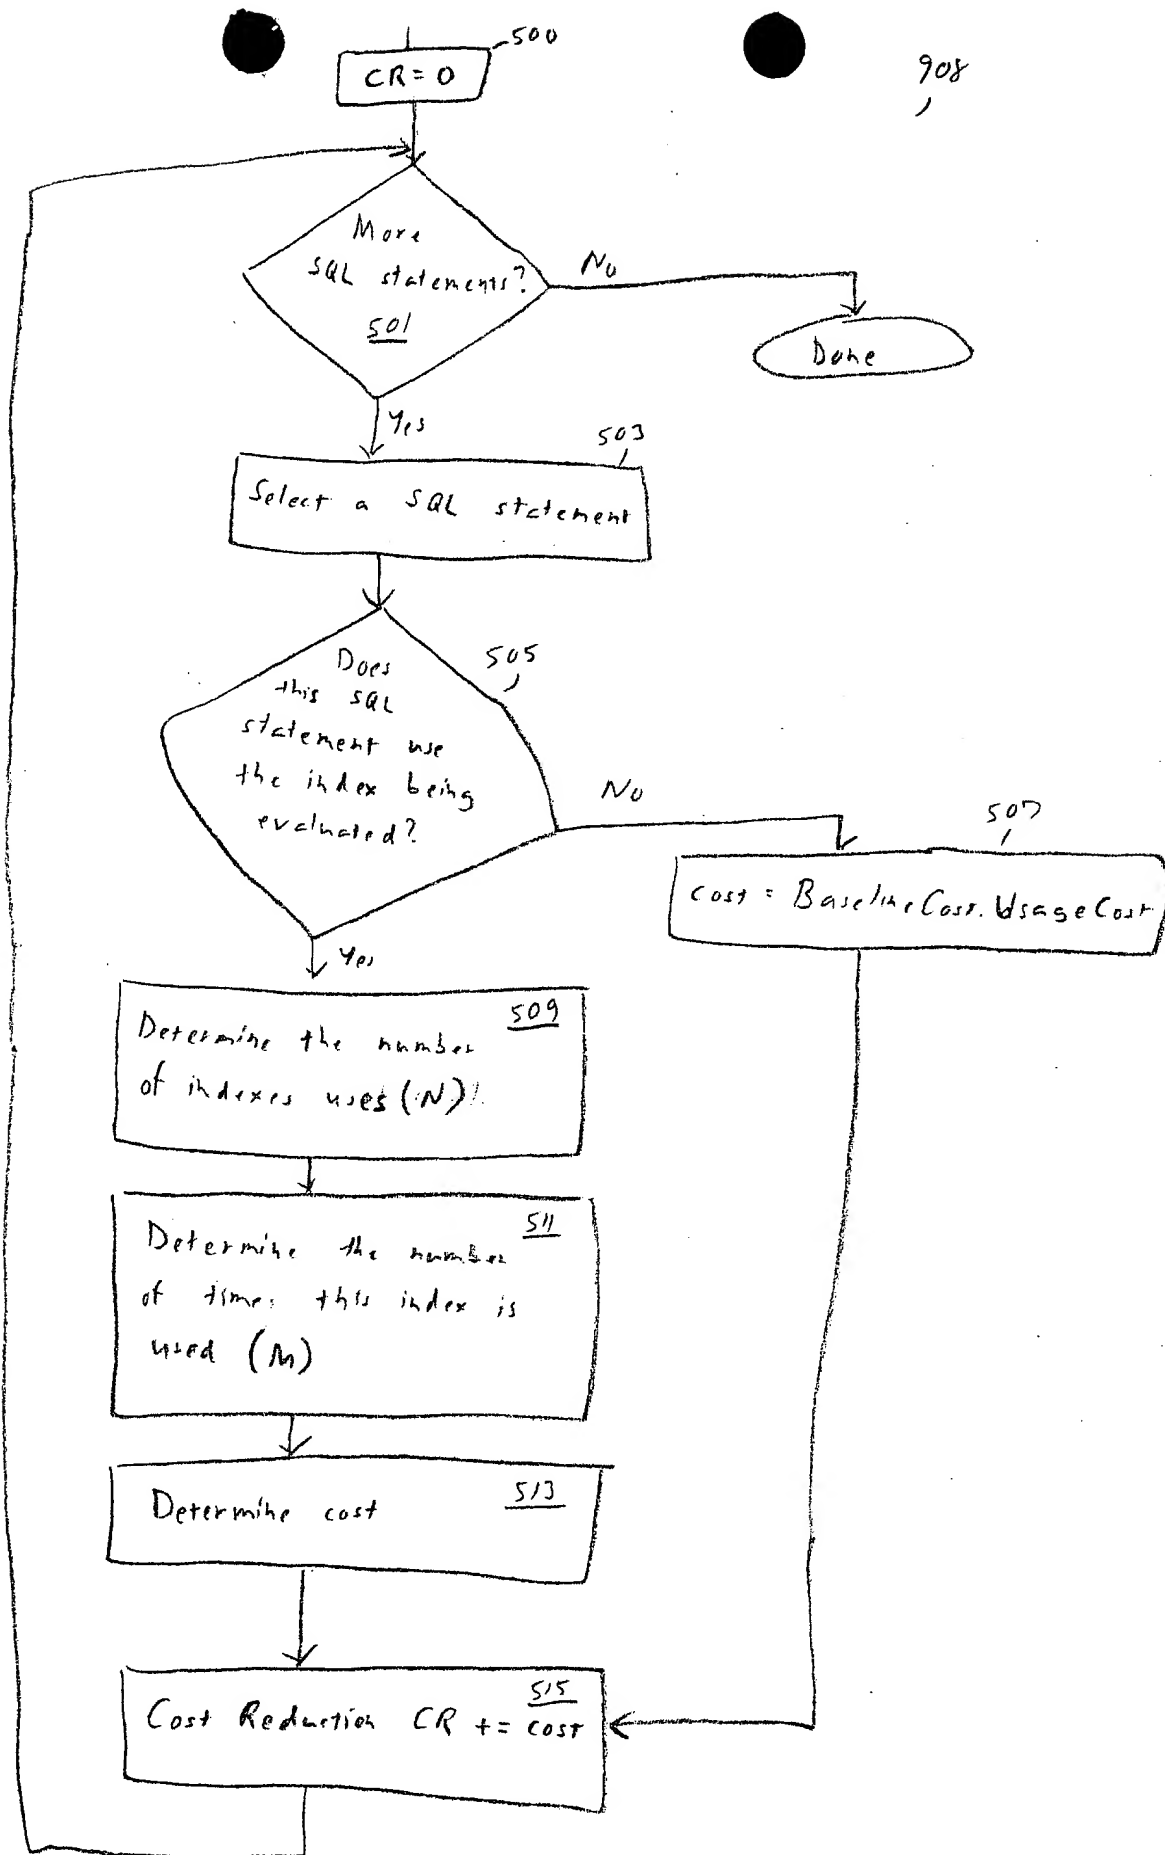 500
CR = 0
908
More
SQL statements?
501
No
Done
Yes
503
Select a SQL statement
Does
this SQL
statement use
the index being
evaluated?
505
No
507
cost = BaselineCost.UsageCost
Yes
509
Determine the number
of indexes uses (N)
511
Determine the number
of times this index is
used (M)
513
Determine cost
515
Cost Reduction CR += cost